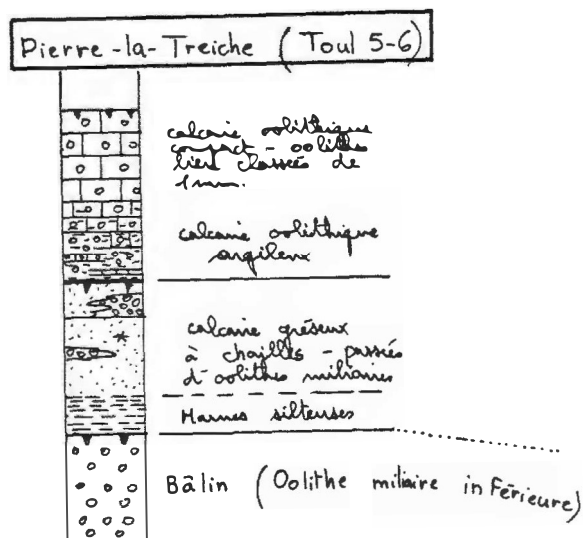 Pierre-la-Treiche (Toul 5-6)
calcaire oolithique
compact - oolithes
bien classées de
1 mm.
calcaire oolithique
argileux
calcaire gréseux
à chailles - passées
d'oolithes miliaires
Marnes silteuses
Bâlin (Oolithe miliaire inférieure)